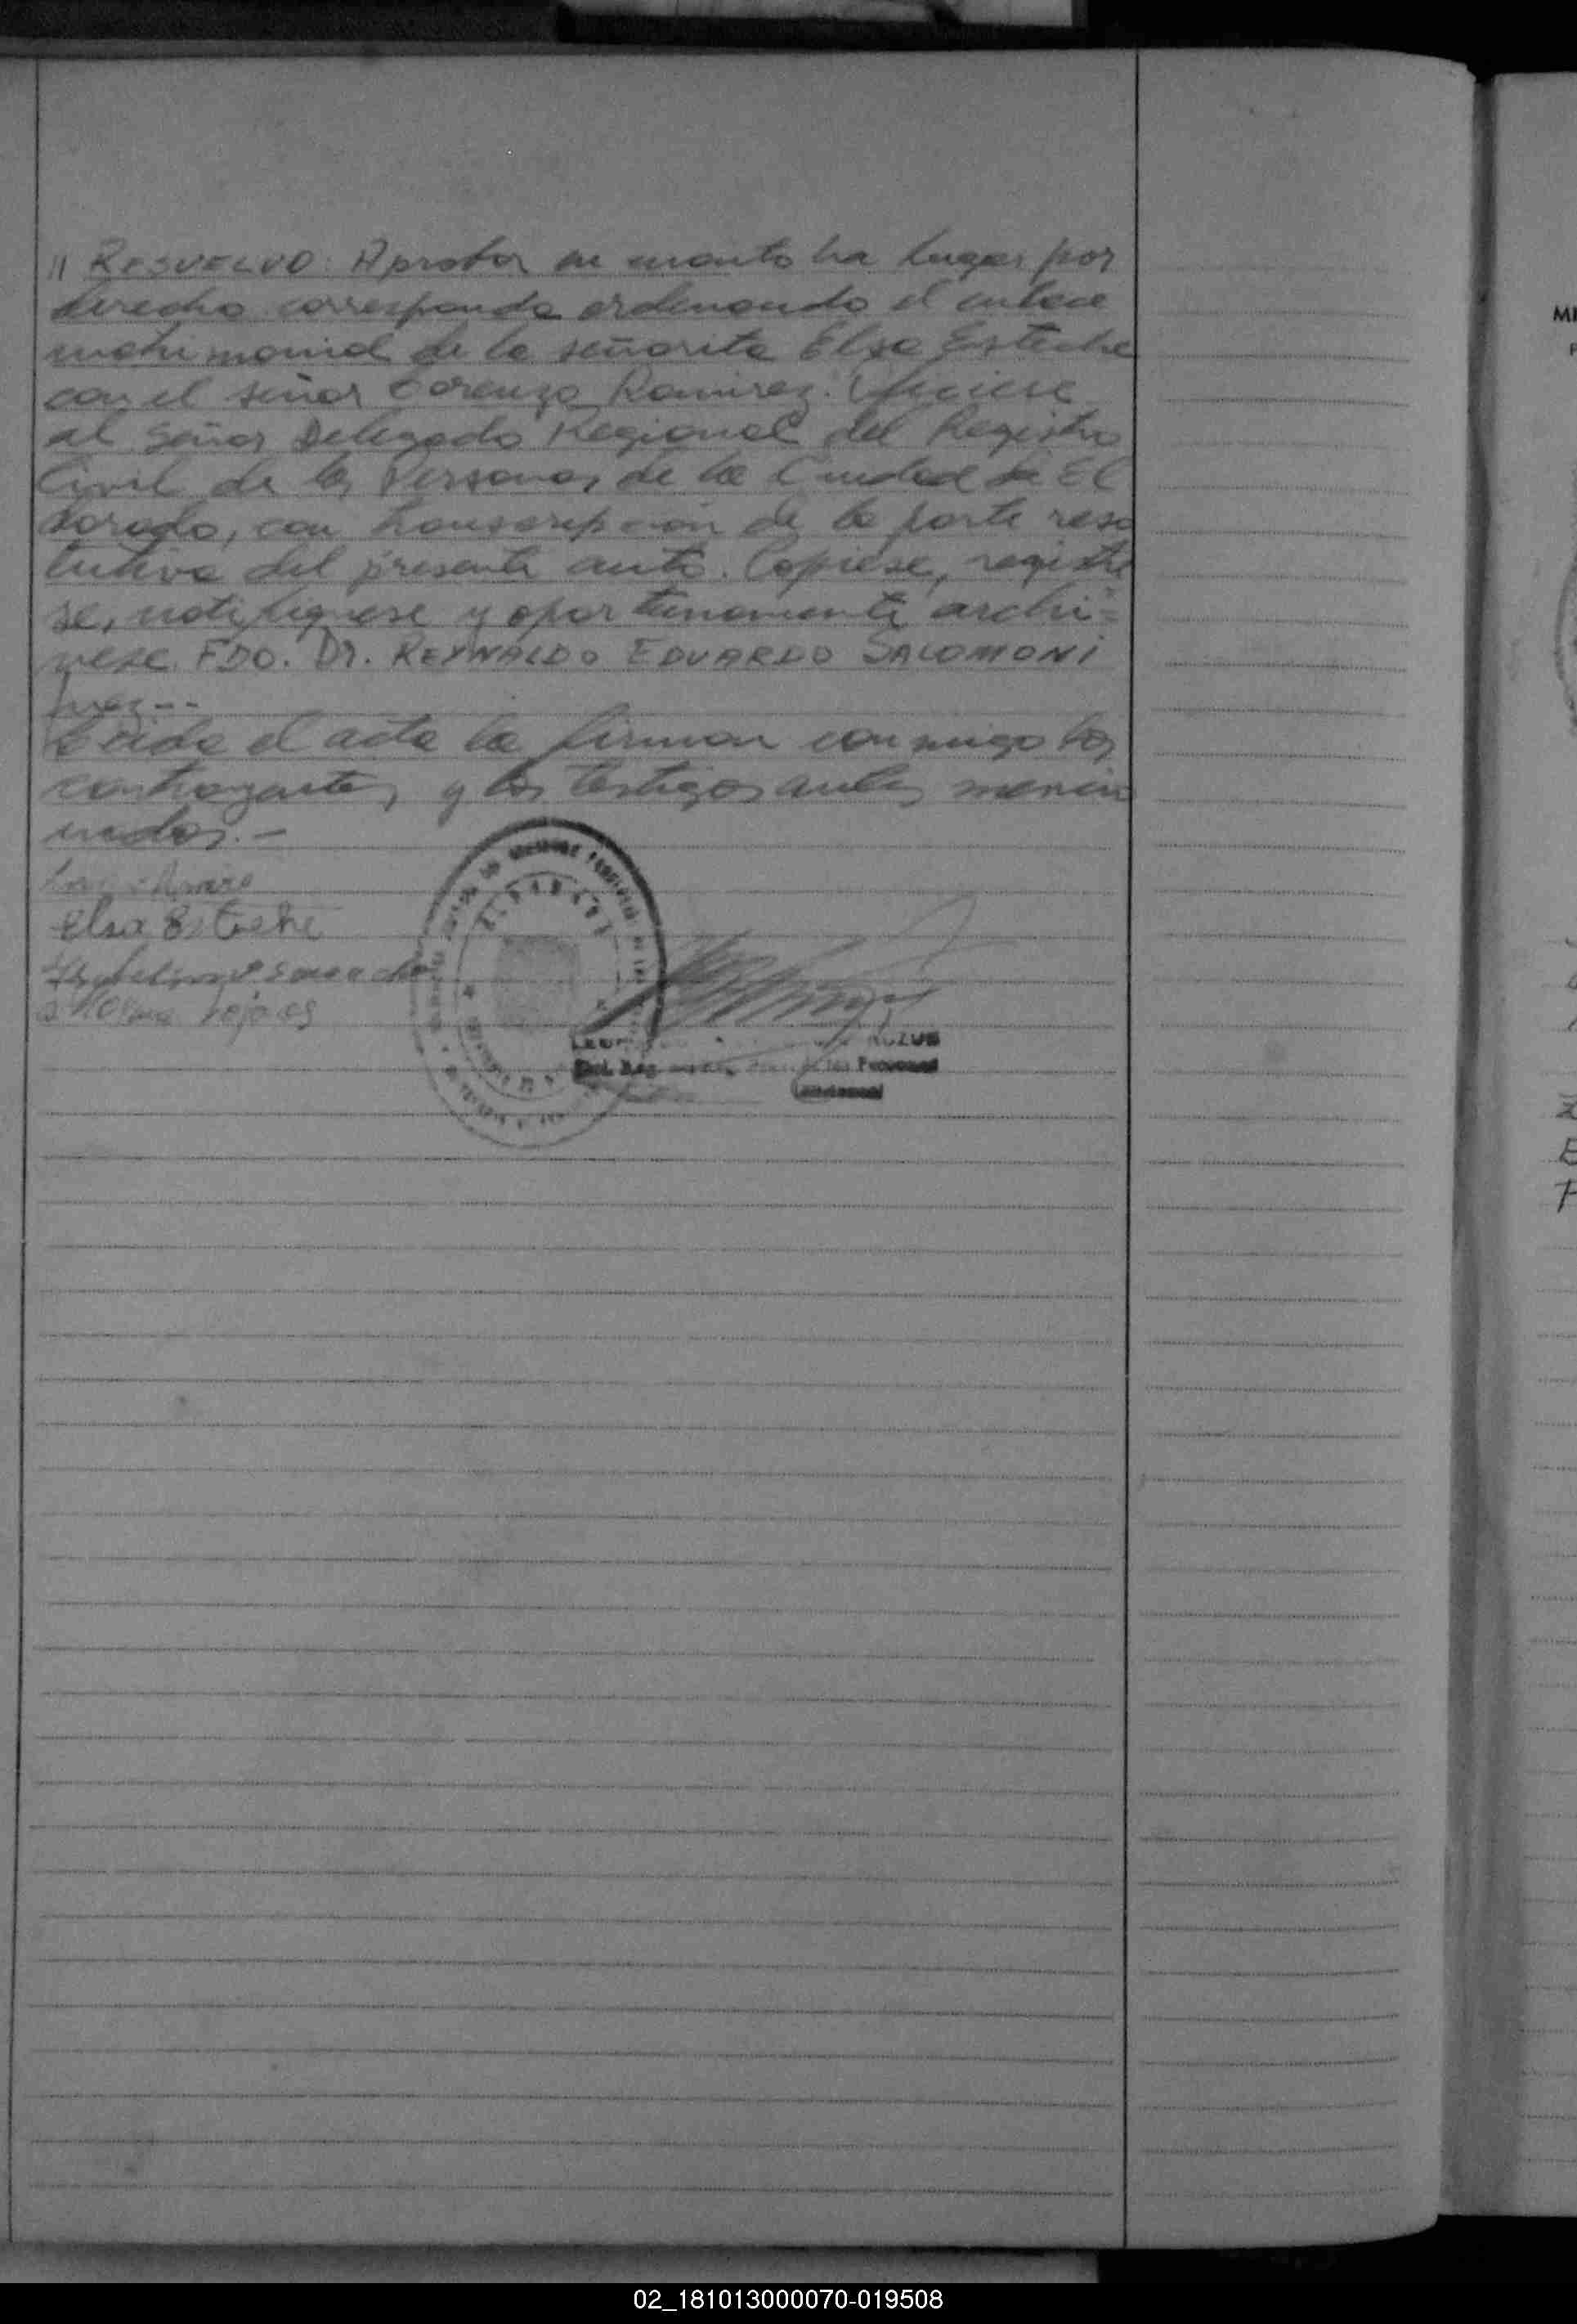 // RESUELVO: Aprobar en cuanto ha lugar por
derecho corresponda ordenando el enlace
matrimonial de la señorita Elsa Esteche
con el señor Lorenzo Ramirez. Oficiese
al señor Delegado Regional del Registro
Civil de las Personas de la Ciudad de El
dorado, con transcripción de la parte reso
lutiva del presente auto. Copiese, registre
se, notifiquese y oportunamente archi=
vese. FDO. Dr. REYNALDO EDUARDO SALOMONI
Juez---
Leida el acta la firman conmigo los
contrayentes, y los testigos antes mencio
nados.-
Elsa Esteche
Rojas
ELDORADO
Personas
MI
02_181013000070-019508